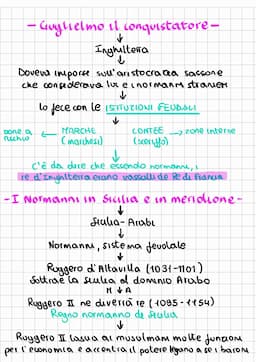 - Guglielmo il conquistatore -
Inghilterra
Doveva imporsi sull'aristocrazia sassone
che considerava lui e i normanni stranieri
lo fece con le ISTITUZIONI FEUDALI
zone a rischio ← MARCHE (marchesi) CONTEE (sceriffo) → zone interne
C'è da dire che essendo normanni, i
re d'Inghilterra erano vassalli de Re di Francia
- I Normanni in Sicilia e in meridione -
Sicilia - Arabi
Normanni, sistema feudale
Ruggero d'Altavilla (1031-1101)
Sottrae la sicilia al dominio Arabo
MA
Ruggero II ne diverrà re (1095-1154)
Regno normanno di Sicilia
Ruggero II lascia ai musulmani molte funzioni
per l'economia e accentra il potere legano a se i baroni